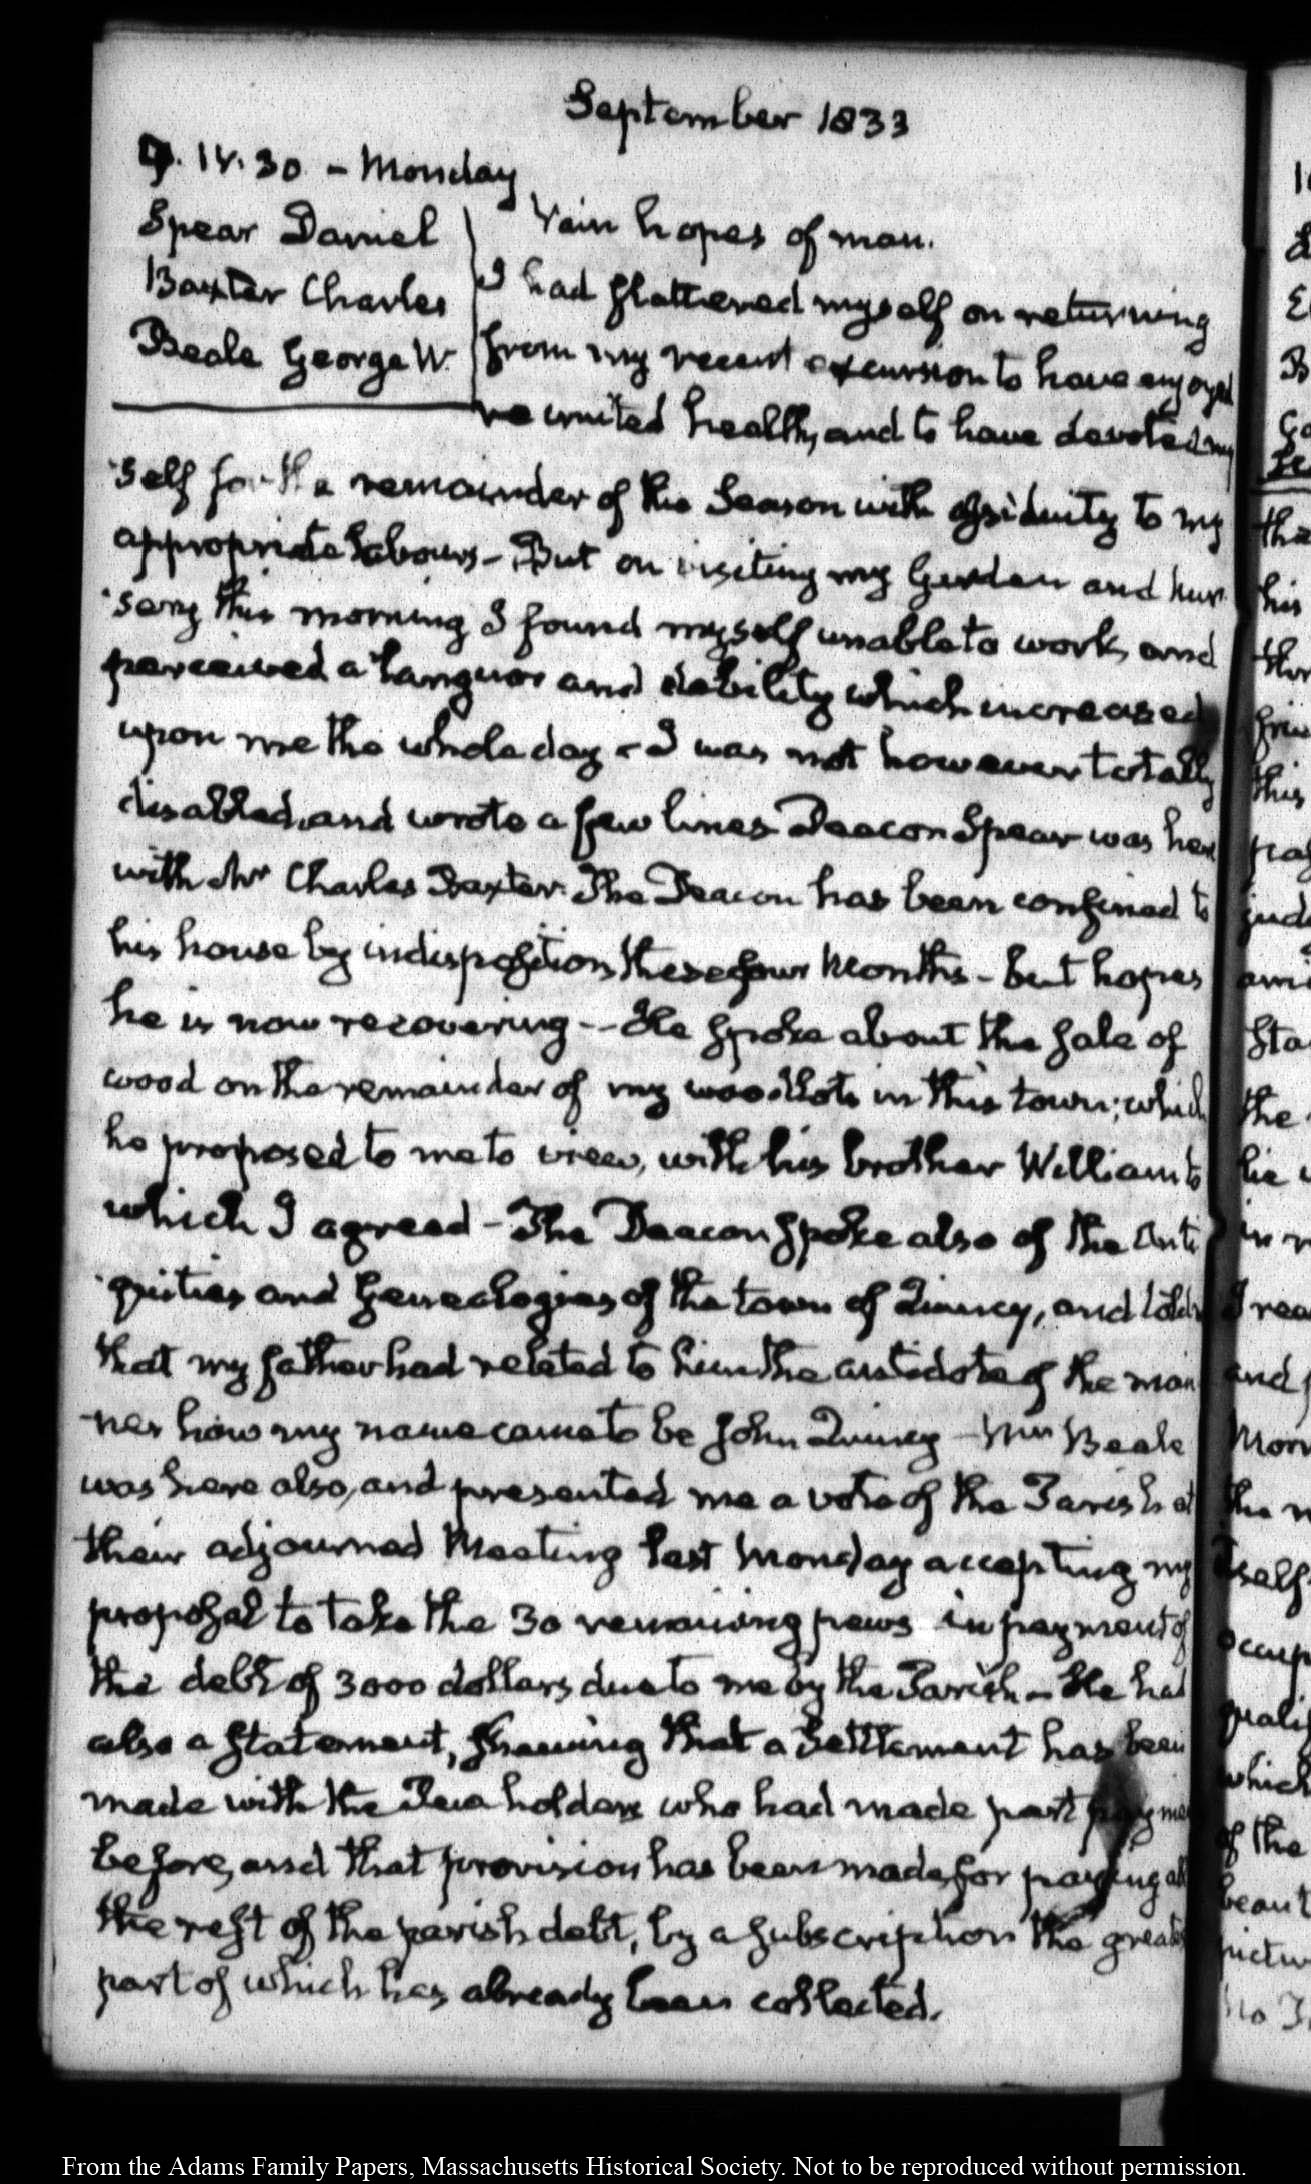 September 1833
9. IV. 30 - Monday
Spear Daniel
Baxter Charles
Beale George W.
Vain hopes of man.
I had flattered myself on returning
from my recent excursion to have enjoyed
re united health, and to have devoted my
self for the remainder of the Season with assiduity to my
appropriate labours - But on visiting my Garden and Nur
sery this morning I found myself unable to work, and
perceived a languor and debility which increased
upon me the whole day - I was not however totally
disabled, and wrote a few lines Deacon Spear was here
with Mr Charles Baxter. The Deacon has been confined to
his house by indisposition these four Months - but hopes
he is now recovering - He spoke about the sale of
wood on the remainder of my woodlots in this town; which
he proposed to me to view, with his brother William to
which I agreed - The Deacon spoke also of the Anti
quities and Genealogies of the town of Quincy, and told
that my father had related to him the antidote of the man
ner how my name came to be John Quincy - Mr Beale
was here also, and presented me a vote of the Parish at
their adjourned Meeting last Monday accepting my
proposal to take the 30 remaining pews in payment of
the debt of 3000 dollars due to me by the Parish - He had
also a statement, shewing that a Settlement has been
made with the Pewholders who had made part payme
before, and that provision has been made for paying all
the rest of the parish debt, by a subscription the greater
part of which has already been collected.
From the Adams Family Papers, Massachusetts Historical Society. Not to be reproduced without permission.